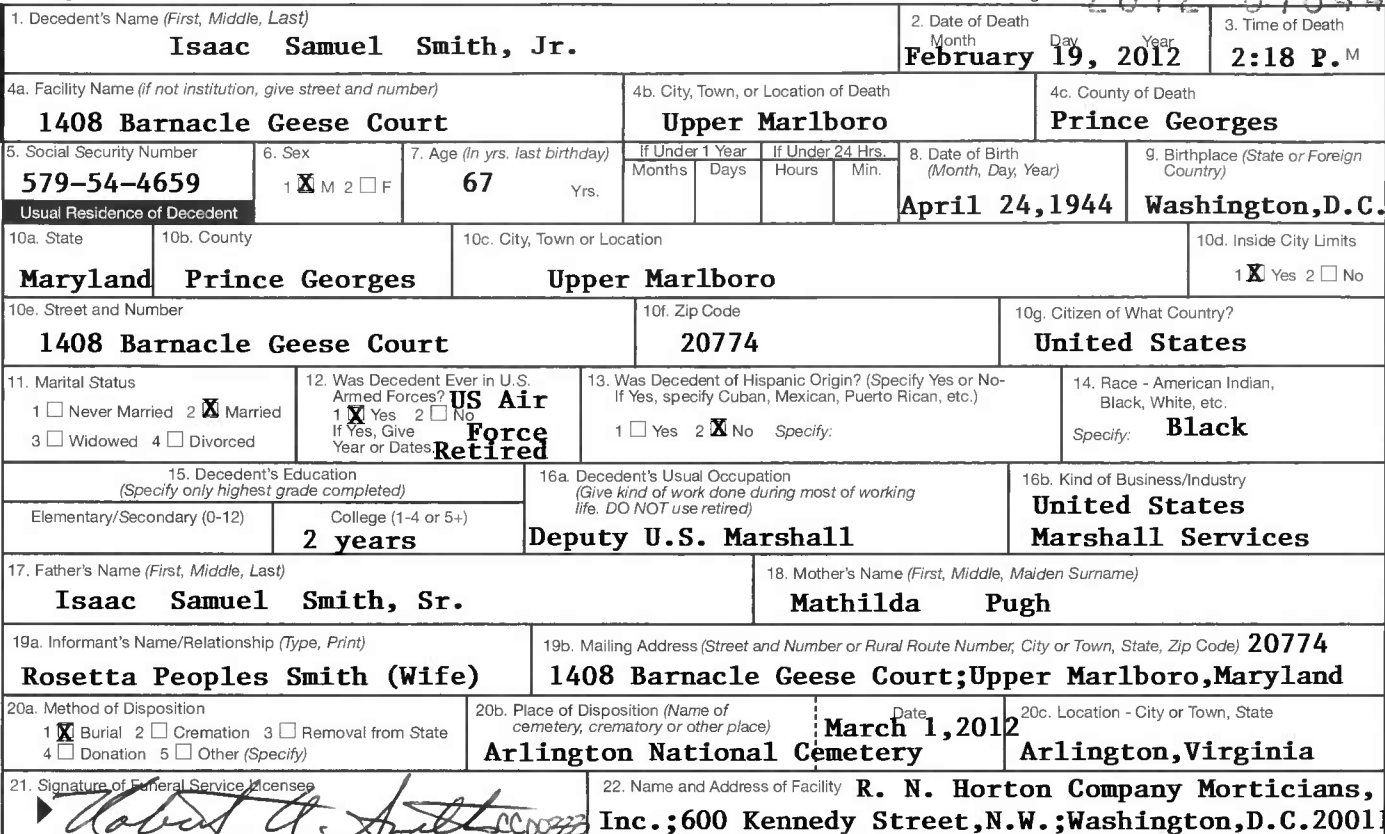 1. Decedent's Name (First, Middle, Last)
Isaac Samuel Smith, Jr.
2. Date of Death
Month Day Year
February 19, 2012
3. Time of Death
2:18 P. M
4a. Facility Name (if not institution, give street and number)
1408 Barnacle Geese Court
4b. City, Town, or Location of Death
Upper Marlboro
4c. County of Death
Prince Georges
5. Social Security Number
579-54-4659
6. Sex
1 X M 2 ☐ F
7. Age (In yrs. last birthday)
67 Yrs.
If Under 1 Year
Months Days
If Under 24 Hrs.
Hours Min.
8. Date of Birth
(Month, Day, Year)
April 24,1944
9. Birthplace (State or Foreign
Country)
Washington,D.C.
Usual Residence of Decedent
10a. State
Maryland
10b. County
Prince Georges
10c. City, Town or Location
Upper Marlboro
10d. Inside City Limits
1 X Yes 2 ☐ No
10e. Street and Number
1408 Barnacle Geese Court
10f. Zip Code
20774
10g. Citizen of What Country?
United States
11. Marital Status
1 ☐ Never Married 2 X Married
3 ☐ Widowed 4 ☐ Divorced
12. Was Decedent Ever in U.S.
Armed Forces? US Air
1 X Yes 2 ☐ No
If Yes, Give Force
Year or Dates. Retired
13. Was Decedent of Hispanic Origin? (Specify Yes or No-
If Yes, specify Cuban, Mexican, Puerto Rican, etc.)
1 ☐ Yes 2 X No Specify:
14. Race - American Indian,
Black, White, etc.
Specify: Black
15. Decedent's Education
(Specify only highest grade completed)
Elementary/Secondary (0-12)
College (1-4 or 5+)
2 years
16a. Decedent's Usual Occupation
(Give kind of work done during most of working
life. DO NOT use retired)
Deputy U.S. Marshall
16b. Kind of Business/Industry
United States
Marshall Services
17. Father's Name (First, Middle, Last)
Isaac Samuel Smith, Sr.
18. Mother's Name (First, Middle, Maiden Surname)
Mathilda Pugh
19a. Informant's Name/Relationship (Type, Print)
Rosetta Peoples Smith (Wife)
19b. Mailing Address (Street and Number or Rural Route Number, City or Town, State, Zip Code) 20774
1408 Barnacle Geese Court;Upper Marlboro,Maryland
20a. Method of Disposition
1 X Burial 2 ☐ Cremation 3 ☐ Removal from State
4 ☐ Donation 5 ☐ Other (Specify)
20b. Place of Disposition (Name of
cemetery, crematory or other place)
Arlington National Cemetery
Date
March 1,2012
20c. Location - City or Town, State
Arlington,Virginia
21. Signature of Funeral Service Licensee
Robert A. Smith
22. Name and Address of Facility R. N. Horton Company Morticians,
Inc.;600 Kennedy Street,N.W.;Washington,D.C.20011